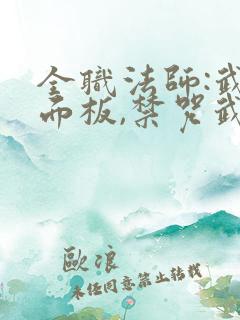 全職法師:武
面板,禁咒武
歐浪
未經同意禁止轉載